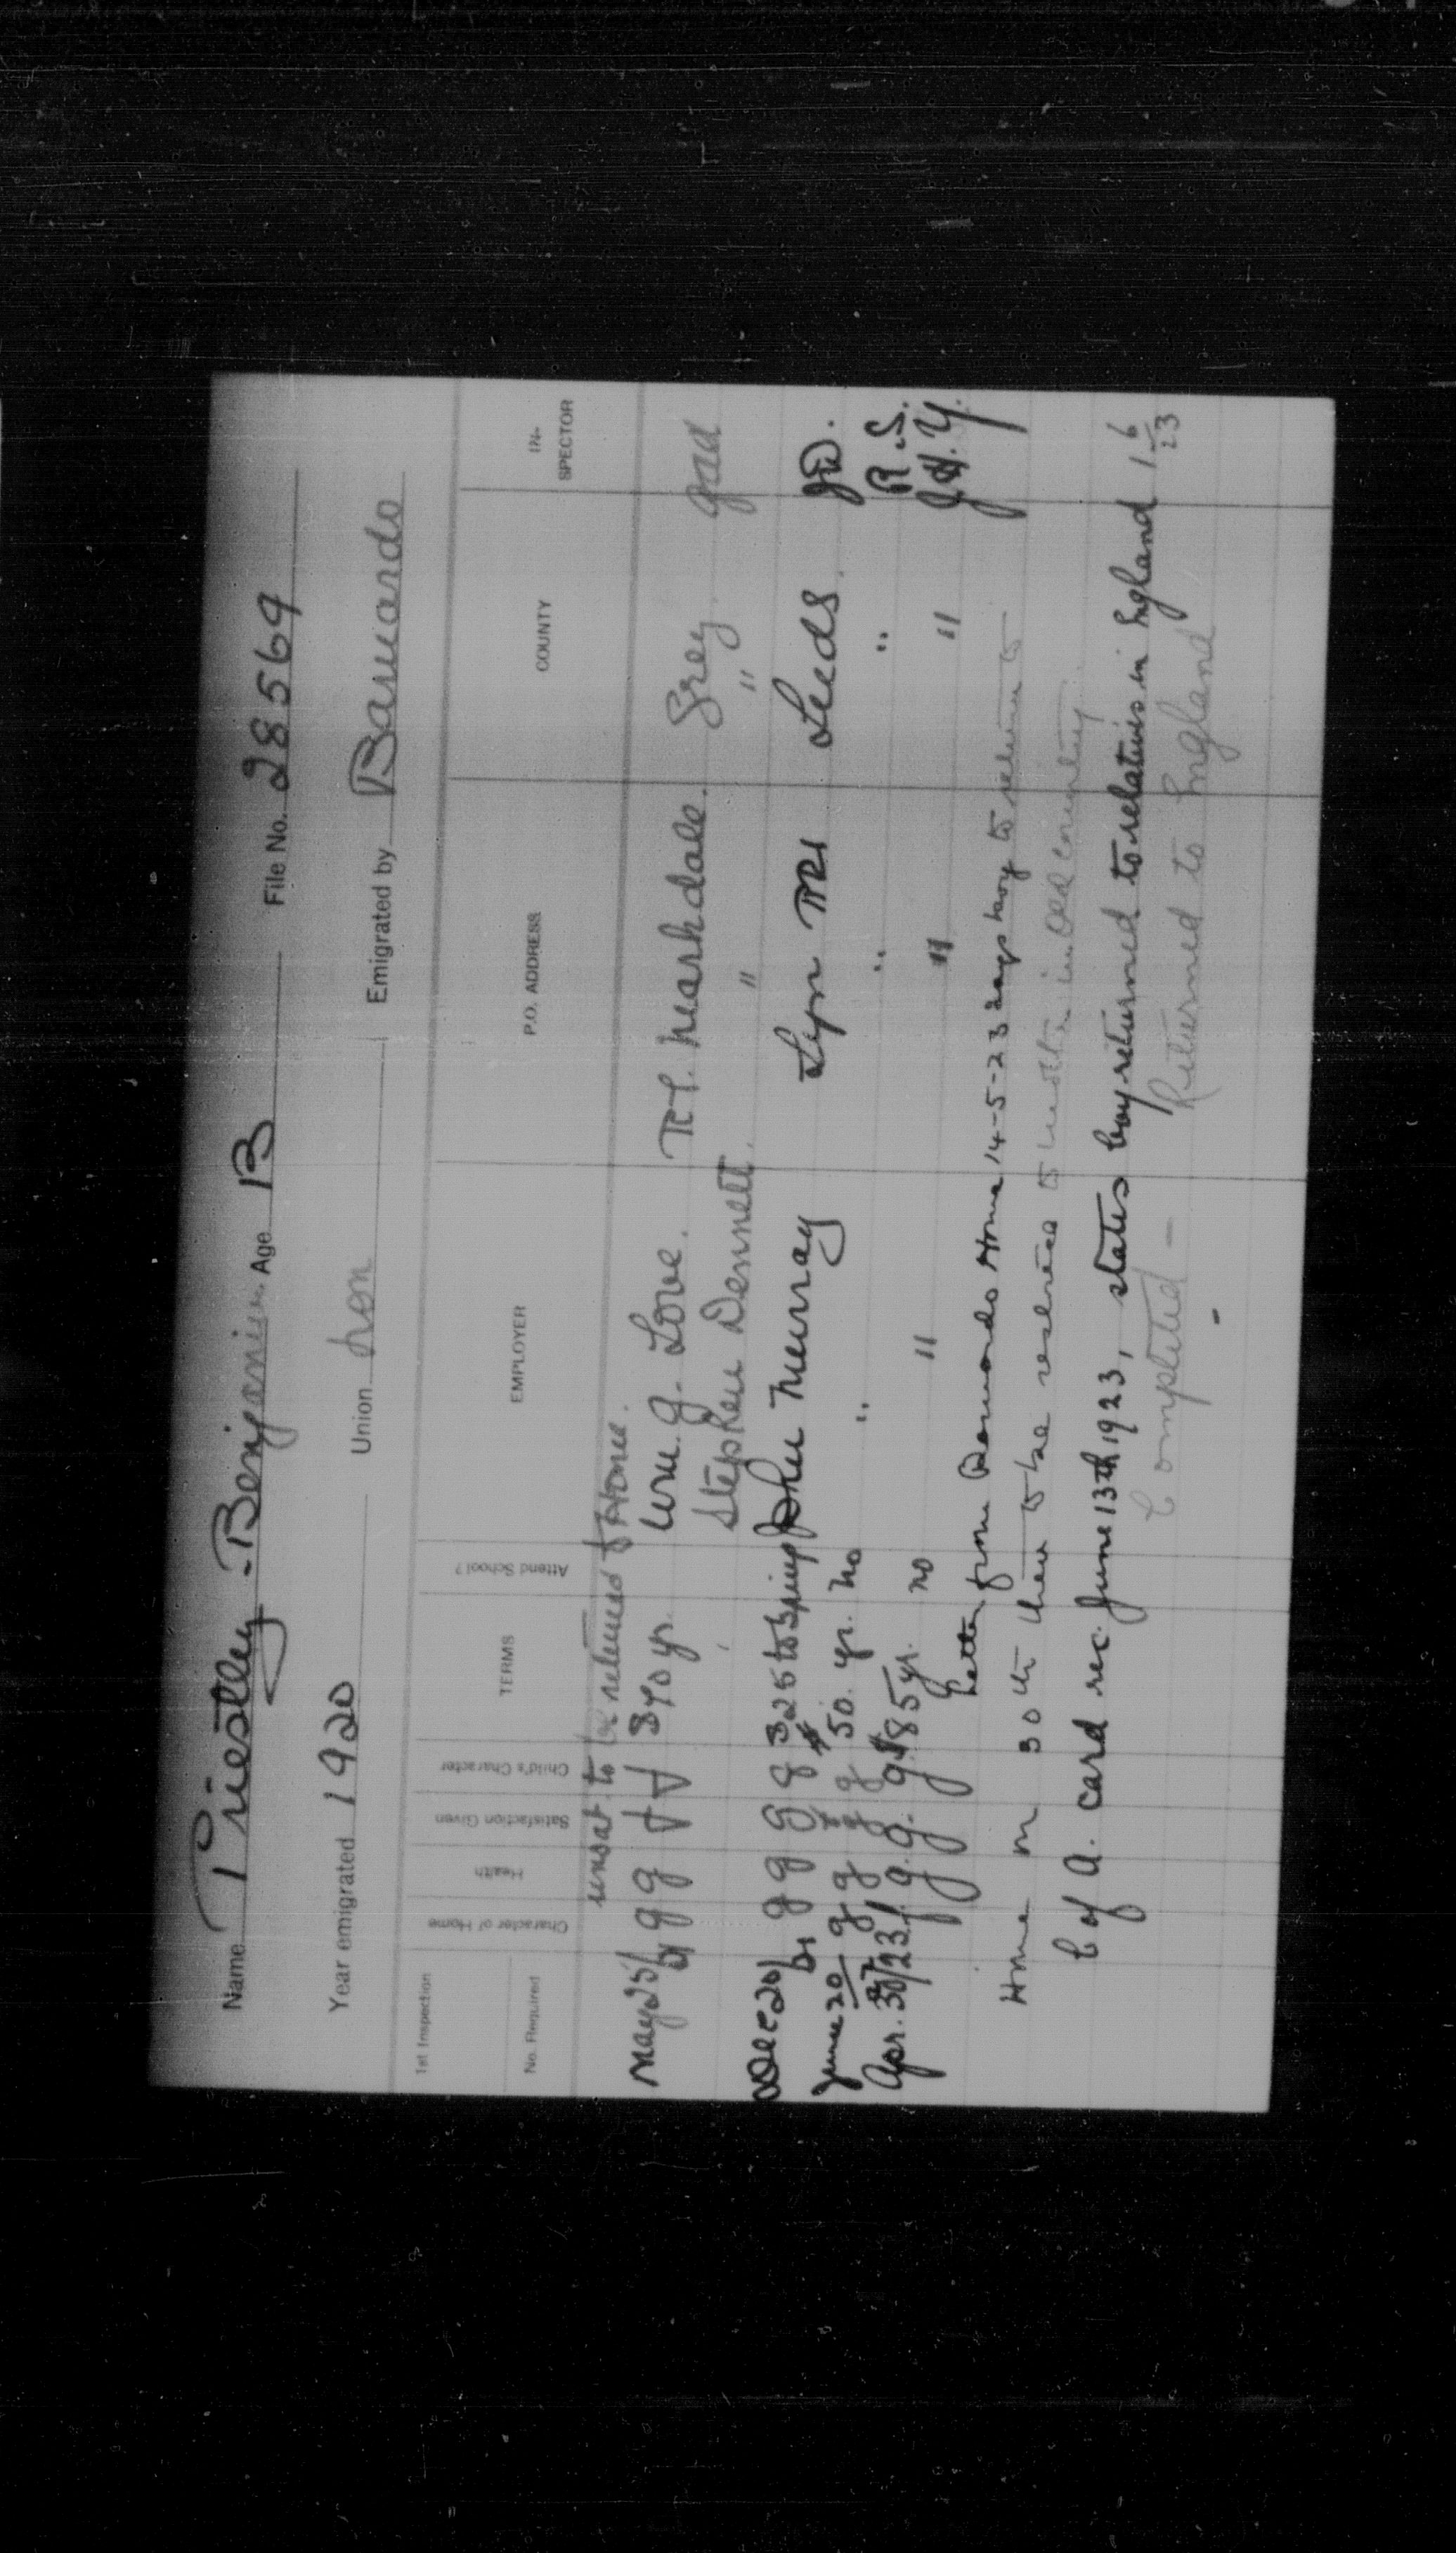 Name Priestley - Benjamin Age 13 File No. 28569
Year emigrated 1920 Union Lon Emigrated by Barnardo
1st Inspection
No. Required Character of Home Health Satisfaction Given Child's Character TERMS Attend School? EMPLOYER P.O. ADDRESS COUNTY IN-SPECTOR
unsat. to be returned to Home.
May 25/21 g g f f $70 yr. Wm. J. Love. R1. Markdale. Grey
Stephen Dennett. " "
Dec 20/21 g g g g $25 to Spring John Murray Lyn RR1 Leeds. JD.
June 20 g g g g $50. yr. no " " " R.S.
Apr. 30/23 f g. g. g. $85 yr. no " " " J.H.Y.
Letter from Barnardo Home 14-5-23 says boy to return to
Home on 30th then to be restored to mother in old country.
C of A. card rec. June 13th 1923, states boy returned to relatives in England 1 6/23
Completed - Returned to England